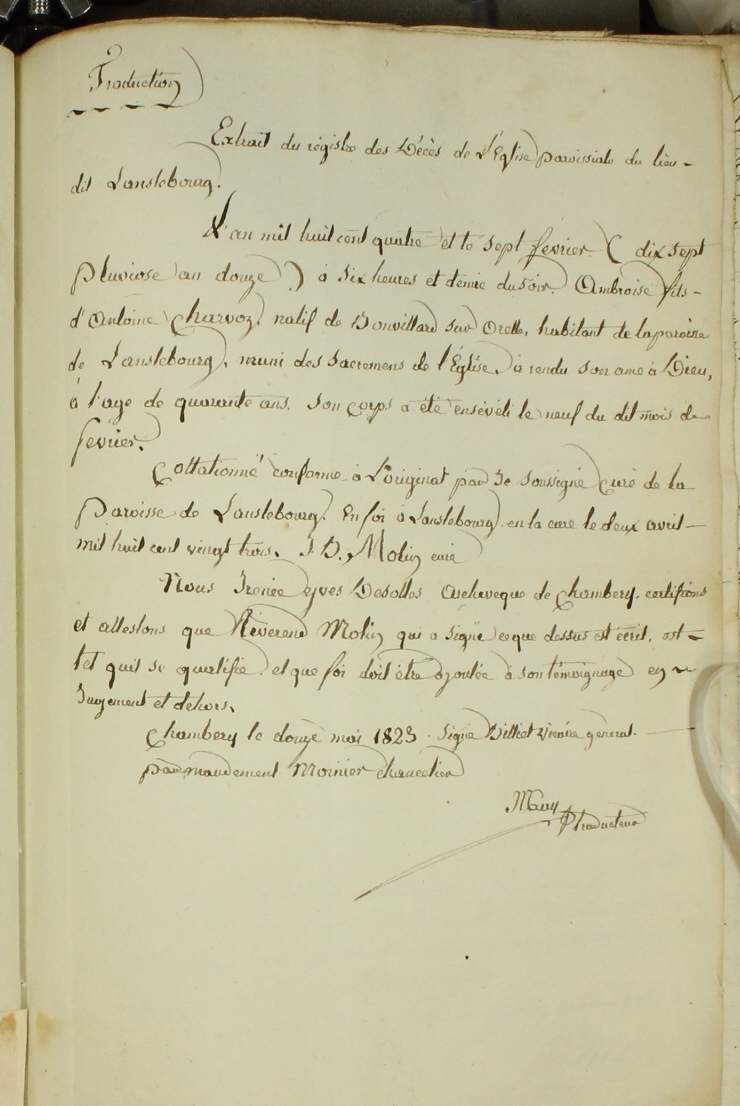 Traduction
Extrait du régistre des Décès de L'Eglise paroissiale du lieu-
dit Lanslebourg.
L'an mil huit cent quatre et le sept février (dix sept
pluviose an douze) à six heures et demie du soir. Ambroise fils-
d'Antoine Charvoz, natif de Bonvillard sur Orelle, habitant de la paroisse
de Lanslebourg, muni des Sacremens de l'Eglise, à rendu son ame à Dieu,
à l'age de quarante ans. Son corps a été enséveli le neuf du dit mois de
février.
Collationné conforme à L'original par Je soussigné curé de la
Paroisse de Lanslebourg. En foi à Lanslebourg en la cure le deux avril-
mil huit cent vingt trois. J. B. Molin curé
Nous Irenée Yves Desolles Archeveque de Chambery, certifions
et attestons que Réverend Molin qui a signé ce que dessus est écrit, est-
tel quil se qualifie. et que foi doit être ajoutée à son témoignage en
Jugement et dehors.
Chambery le douze mai 1823. Signé Billiet vicaire général.
par mandement Moinier chancelier
Mavy
traducteur